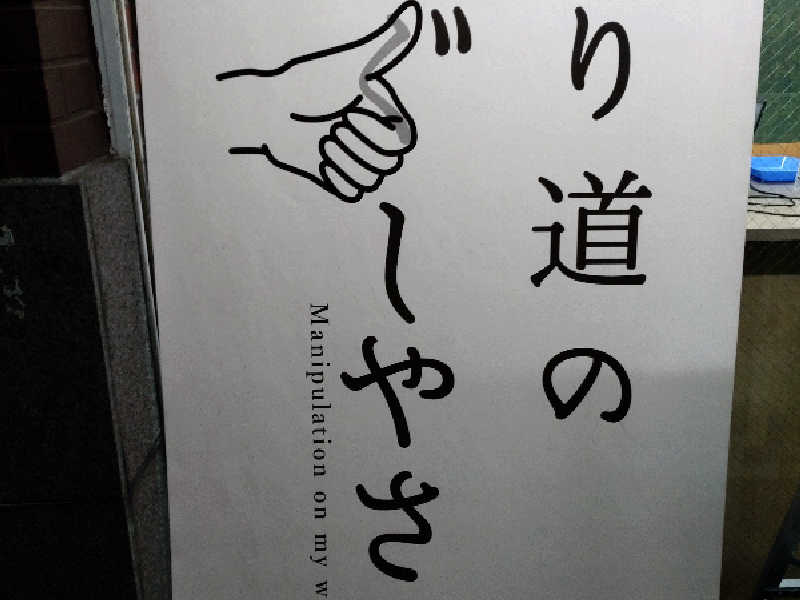 り道の
しやれ
Manipulation on my